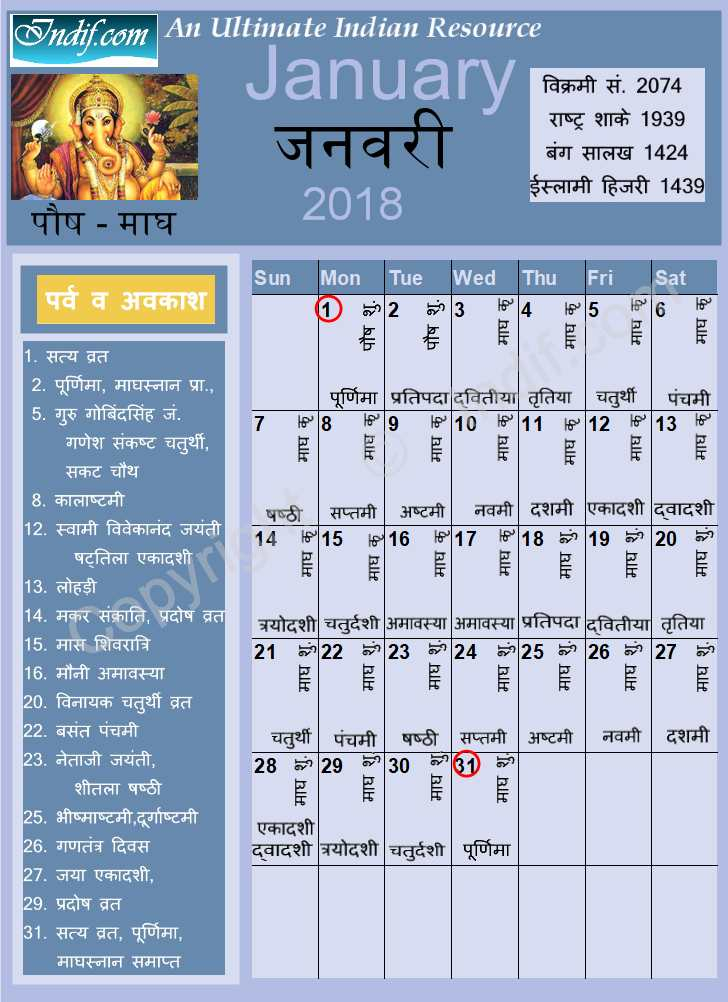 Indif.com An Ultimate Indian Resource
January
जनवरी
2018
विक्रमी सं. 2074
राष्ट्र शाके 1939
बंग सालख 1424
ईस्लामी हिजरी 1439
पौष - माघ
पर्व व अवकाश
1. सत्य व्रत
2. पूर्णिमा, माघस्नान प्रा.,
5. गुरु गोबिंदसिंह जं.
गणेश संकष्ट चतुर्थी,
सकट चौथ
8. कालाष्टमी
12. स्वामी विवेकानंद जयंती
षट्तिला एकादशी
13. लोहड़ी
14. मकर संक्रांति, प्रदोष व्रत
15. मास शिवरात्रि
16. मौनी अमावस्या
20. विनायक चतुर्थी व्रत
22. बसंत पंचमी
23. नेताजी जयंती,
शीतला षष्ठी
25. भीष्माष्टमी,दूर्गाष्टमी
26. गणतंत्र दिवस
27. जया एकादशी,
29. प्रदोष व्रत
31. सत्य व्रत, पूर्णिमा,
माघस्नान समाप्त
Sun Mon Tue Wed Thu Fri Sat
1 पौष शु. 2 पौष शु. 3 माघ कृ 4 माघ कृ 5 माघ कृ 6 माघ कृ
पूर्णिमा प्रतिपदा द्वितीया तृतिया चतुर्थी पंचमी
7 माघ कृ 8 माघ कृ 9 माघ कृ 10 माघ कृ 11 माघ कृ 12 माघ कृ 13 माघ कृ
षष्ठी सप्तमी अष्टमी नवमी दशमी एकादशी द्वादशी
14 माघ कृ 15 माघ कृ 16 माघ कृ 17 माघ कृ 18 माघ शु. 19 माघ शु. 20 माघ शु.
त्रयोदशी चतुर्दशी अमावस्या अमावस्या प्रतिपदा द्वितीया तृतिया
21 माघ शु. 22 माघ शु. 23 माघ शु. 24 माघ शु. 25 माघ शु. 26 माघ शु. 27 माघ शु.
चतुर्थी पंचमी षष्ठी सप्तमी अष्टमी नवमी दशमी
28 माघ शु. 29 माघ शु. 30 माघ शु. 31 माघ शु.
एकादशी
द्वादशी त्रयोदशी चतुर्दशी पूर्णिमा
Copyright © Indif.com